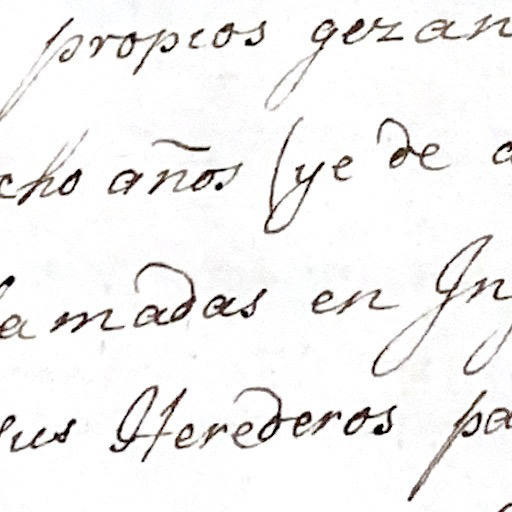 propios gezan
cho años (ye de a
lamadas en Ing
sus Herederos pa